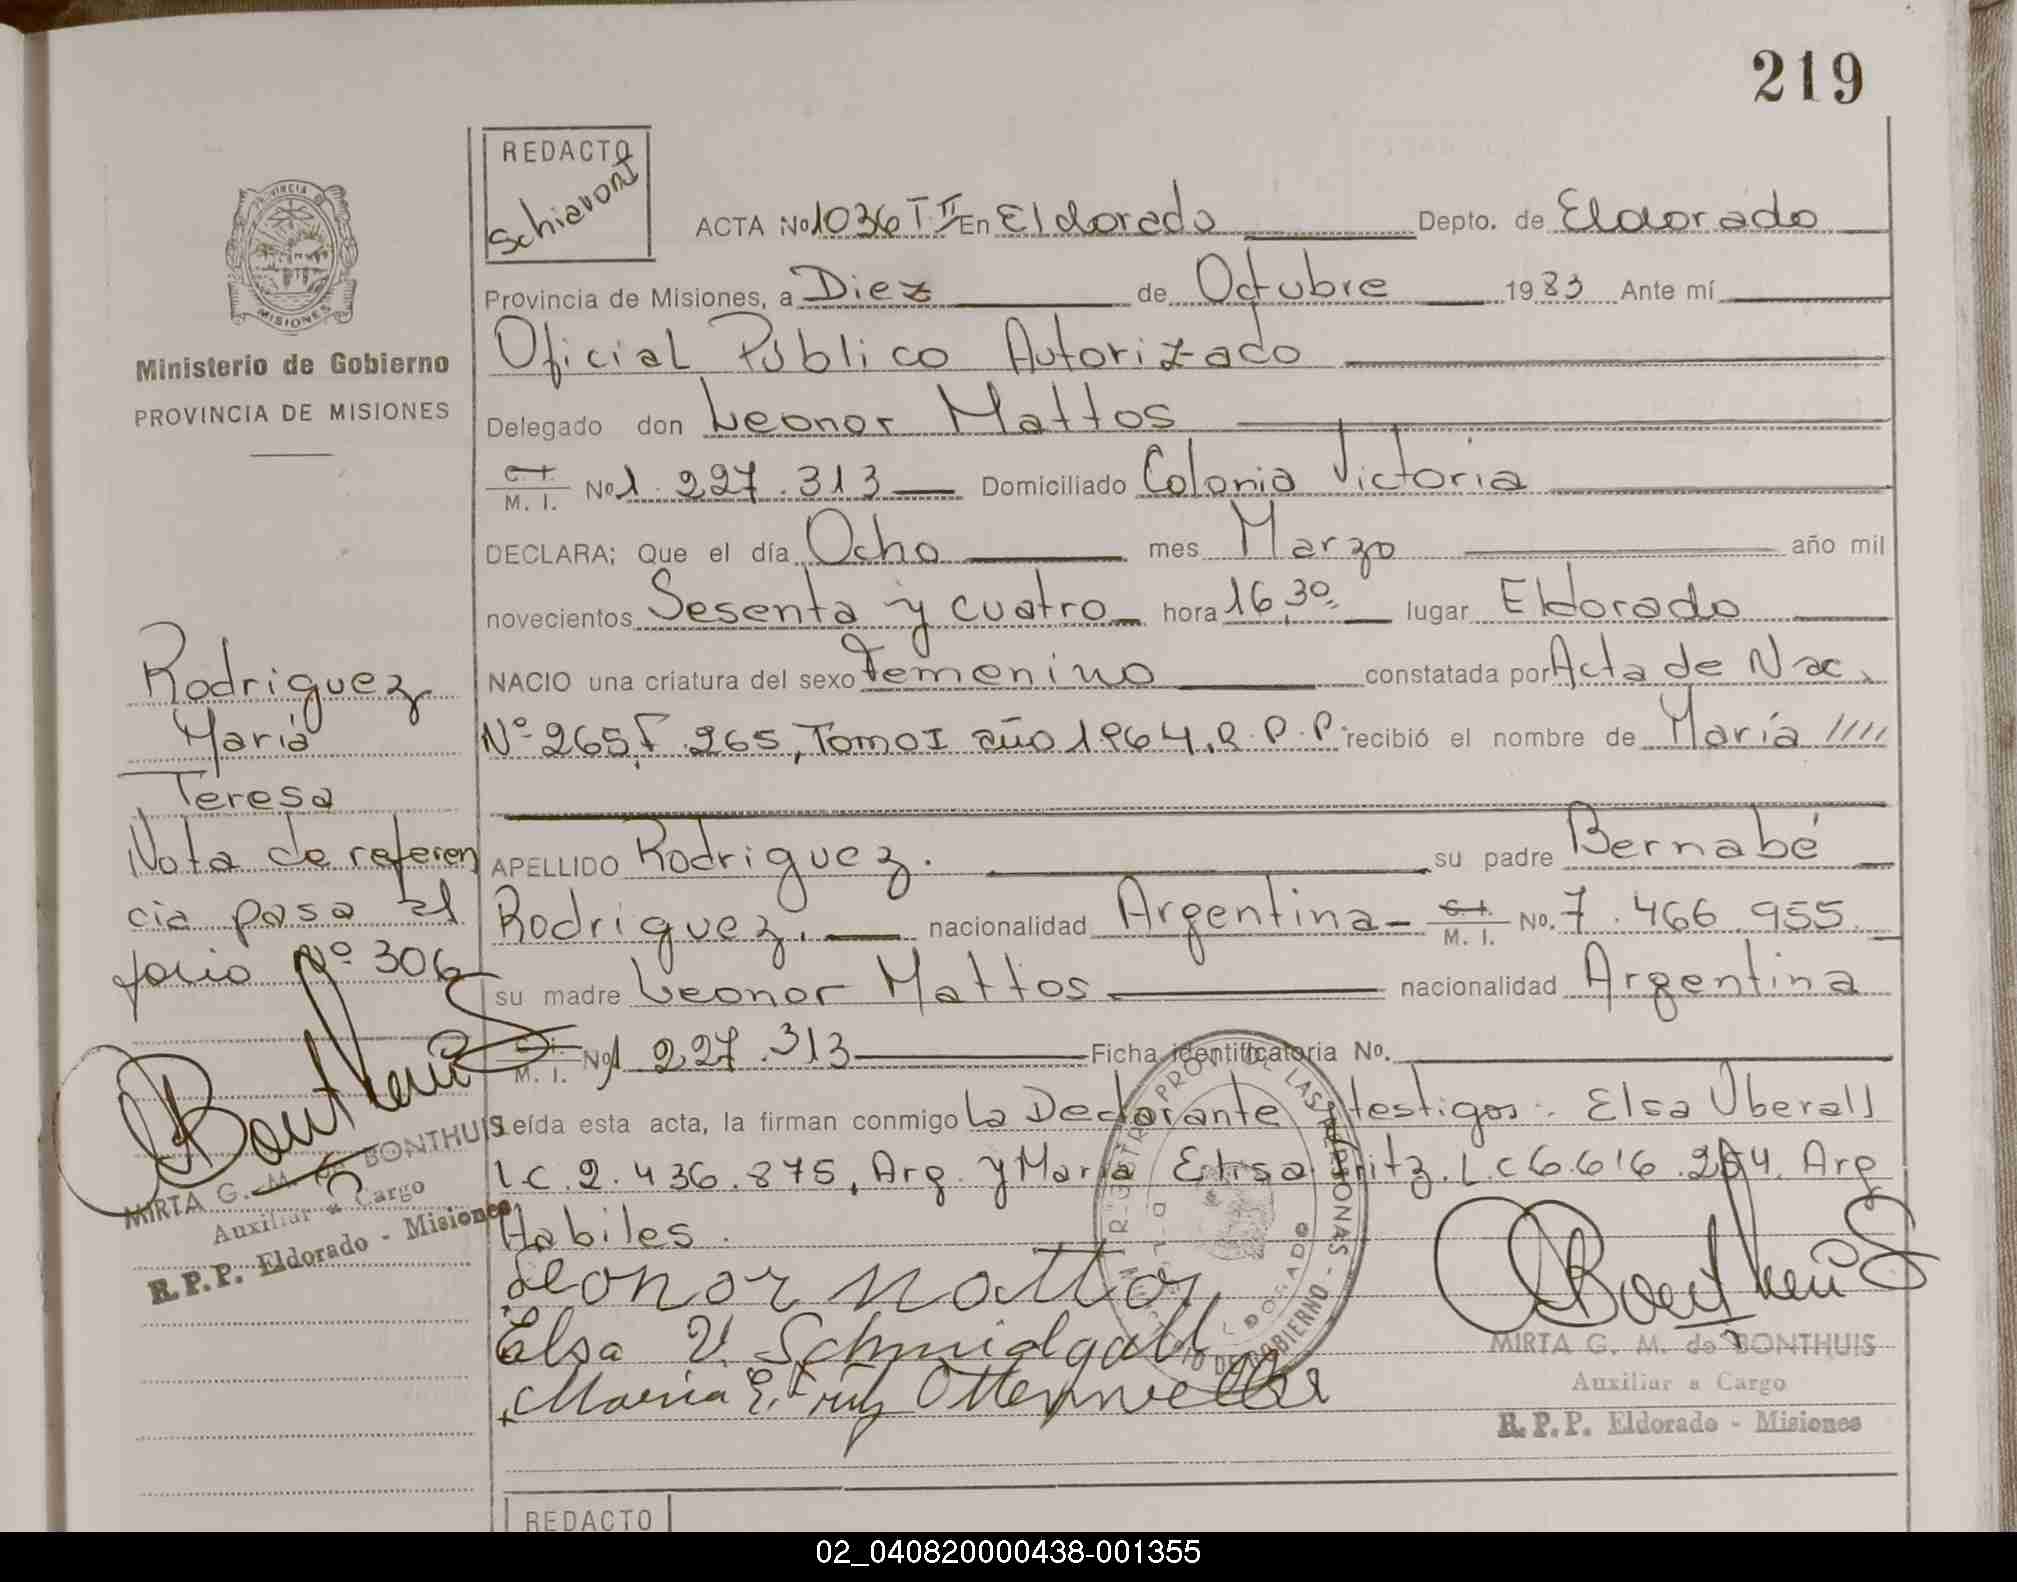 219
REDACTO
Schiavoni
ACTA No 1036 T II En Eldorado Depto. de Eldorado
Provincia de Misiones, a Diez de Octubre 1983 Ante mí
Oficial Público Autorizado
Delegado don Leonor Mattos
C. I. M. I. No 1.227.313 Domiciliado Colonia Victoria
DECLARA; Que el día Ocho mes Marzo año mil
novecientos Sesenta y cuatro hora 16,30 lugar Eldorado
NACIO una criatura del sexo Femenino constatada por Acta de Nac.
Nº 265 F. 265, Tomo I año 1964. R.P.P. recibió el nombre de María /////
APELLIDO Rodriguez. su padre Bernabé
Rodriguez. nacionalidad Argentina C. I. M. I. No. 7.466.955
su madre Leonor Mattos nacionalidad Argentina
C. I. M. I. No 1.227.313 Ficha identificatoria No.
Leída esta acta, la firman conmigo La Declarante y testigos: Elsa Uberall
L.C. 2.436.875, Arg. y María Elisa Fritz. L.C 6.616.2 4. Arg
Habiles.
Leonor Mattos
Elsa U. Schmidgall
María E. Fritz Ottenweller
PROVINCIA
MISIONES
Ministerio de Gobierno
PROVINCIA DE MISIONES
Rodriguez
María
Teresa
Nota de referen
cia pasa al
folio Nº 306
Bonthuis
MIRTA G. M. de BONTHUIS
Auxiliar a Cargo
R.P.P. Eldorado - Misiones
REGISTRO PROV. DE LAS PERSONAS - MINISTERIO DE GOBIERNO
Bonthuis
MIRTA G. M. de BONTHUIS
Auxiliar a Cargo
R.P.P. Eldorado - Misiones
REDACTO
02_040820000438-001355